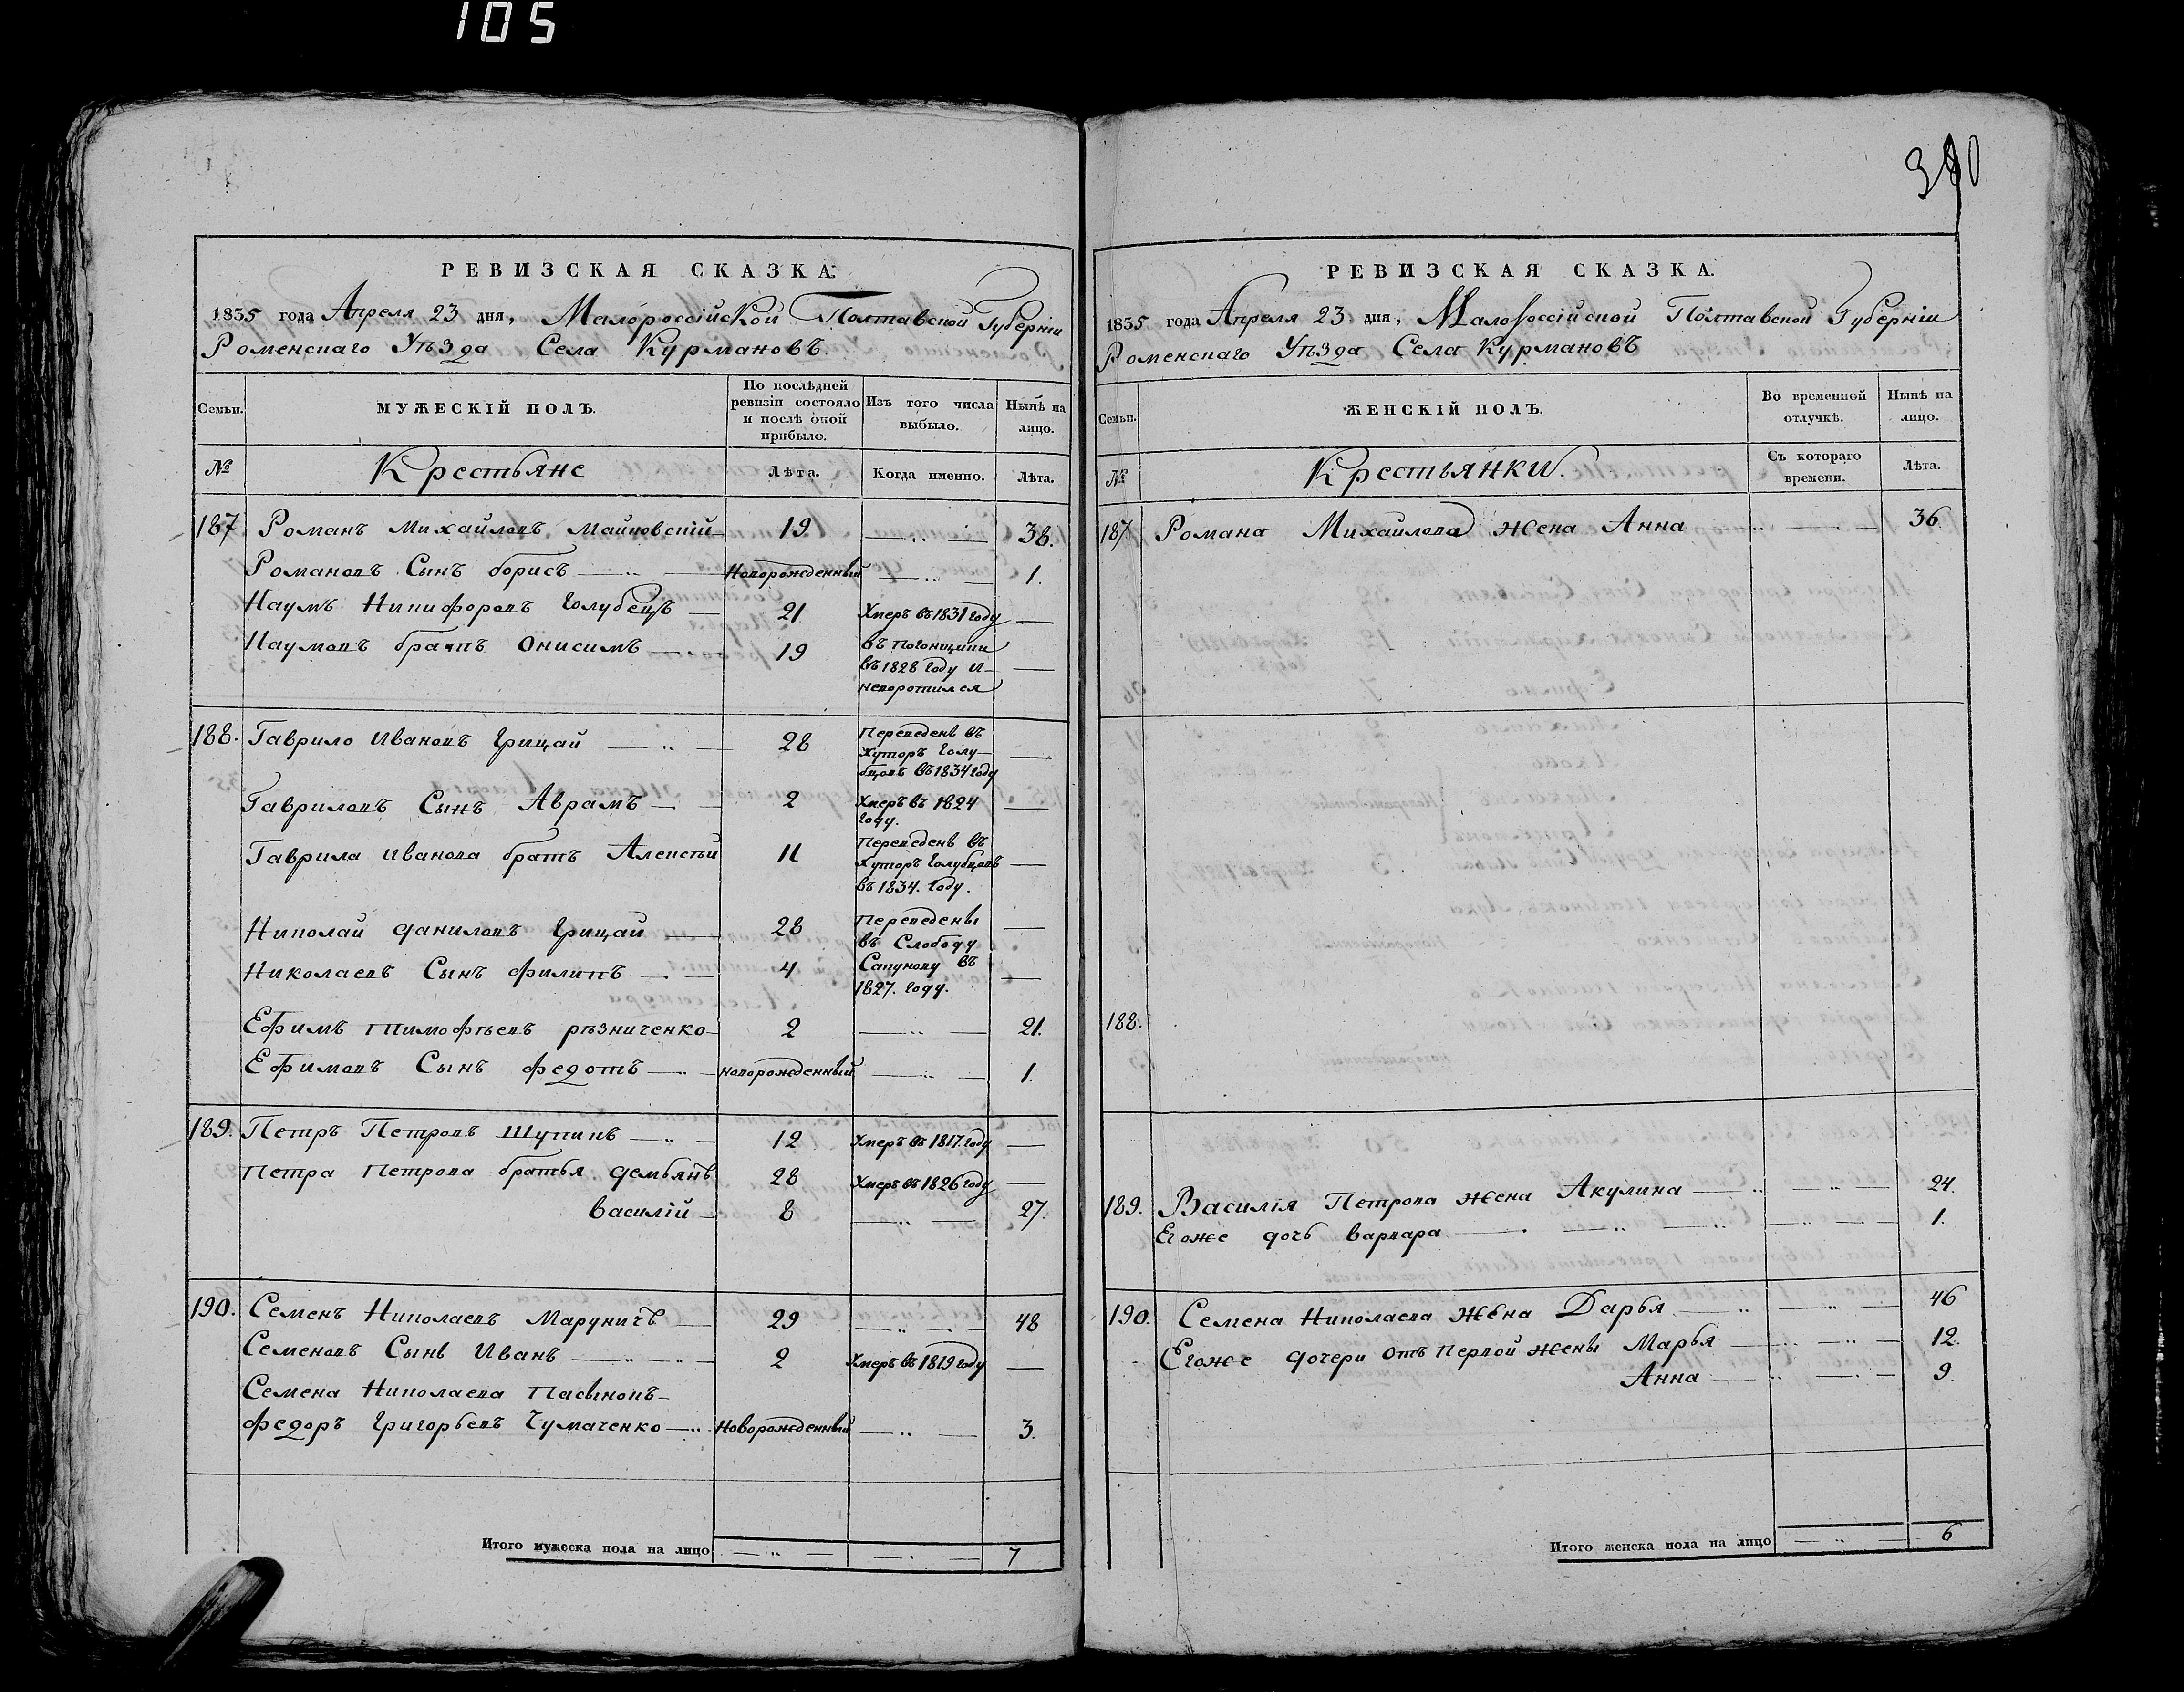 105
380
РЕВИЗСКАЯ СКАЗКА.
1835 года Апреля 23 дня, Малороссійской Полтавской Губерніи
Роменскаго Уѣзда Села Курмановъ.
Семьи.
МУЖЕСКІЙ ПОЛЪ.
По послѣдней ревизіи состояло и послѣ оной прибыло.
Изъ того числа выбыло.
Нынѣ на лицо.
№
Крестьяне
Лѣта.
Когда именно.
Лѣта.
187 Романъ Михайловъ Майковскій 19 38.
Романовъ Сынъ борисъ Новорожденный 1.
Наумъ Никифоровъ Голубецъ 21 Умеръ въ 1831 году
Наумовъ братъ Онисимъ 19 въ погонщики
въ 1828 году и
неворотился
188. Гаврило Ивановъ Грицай 28 Переведенъ въ
хуторъ Голу-
бцовъ въ 1834 году
Гавриловъ Сынъ Аврамъ 2 Умеръ въ 1824
году.
Гаврила Иванова братъ Алексѣй 11 переведенъ въ
хуторъ Голубцовъ
въ 1834. году.
Николай Даниловъ Грицай 28 Переведены
въ Слободу
Николаевъ Сынъ Филипъ 4 Сапунову въ
1827. году.
Ефимъ Тимофѣевъ рѣзниченко 2 21.
Ефимовъ Сынъ Федотъ новорожденный 1.
189. Петръ Петровъ Шупикъ 12 Умеръ въ 1817. году
Петра Петрова братья Демьянъ 28 Умеръ въ 1826 году
Василій 8 27.
190. Семенъ Николаевъ Маруничъ 29 48
Семеновъ Сынъ Иванъ 2 Умеръ въ 1819 году
Семена Николаева Пасынокъ
Федоръ Григорьевъ Чумаченко Новорожденный 3.
Итого мужеска пола на лицо 7
РЕВИЗСКАЯ СКАЗКА.
1835 года Апреля 23 дня, Малороссійской Полтавской Губерніи
Роменскаго Уѣзда Села Курмановъ
Семьи.
ЖЕНСКІЙ ПОЛЪ.
Во временной отлучкѣ.
Нынѣ на лицо.
№
Крестьянки.
Съ котораго времени.
Лѣта.
187. Романа Михайлова жена Анна 36.
188.
189. Василія Петрова жена Акулина 24.
Егоже дочь варвара 1.
190. Семена Николаева жена Дарья 46
Егоже дочери отъ первой жены Марья 12.
Анна 9.
Итого женска пола на лицо 6